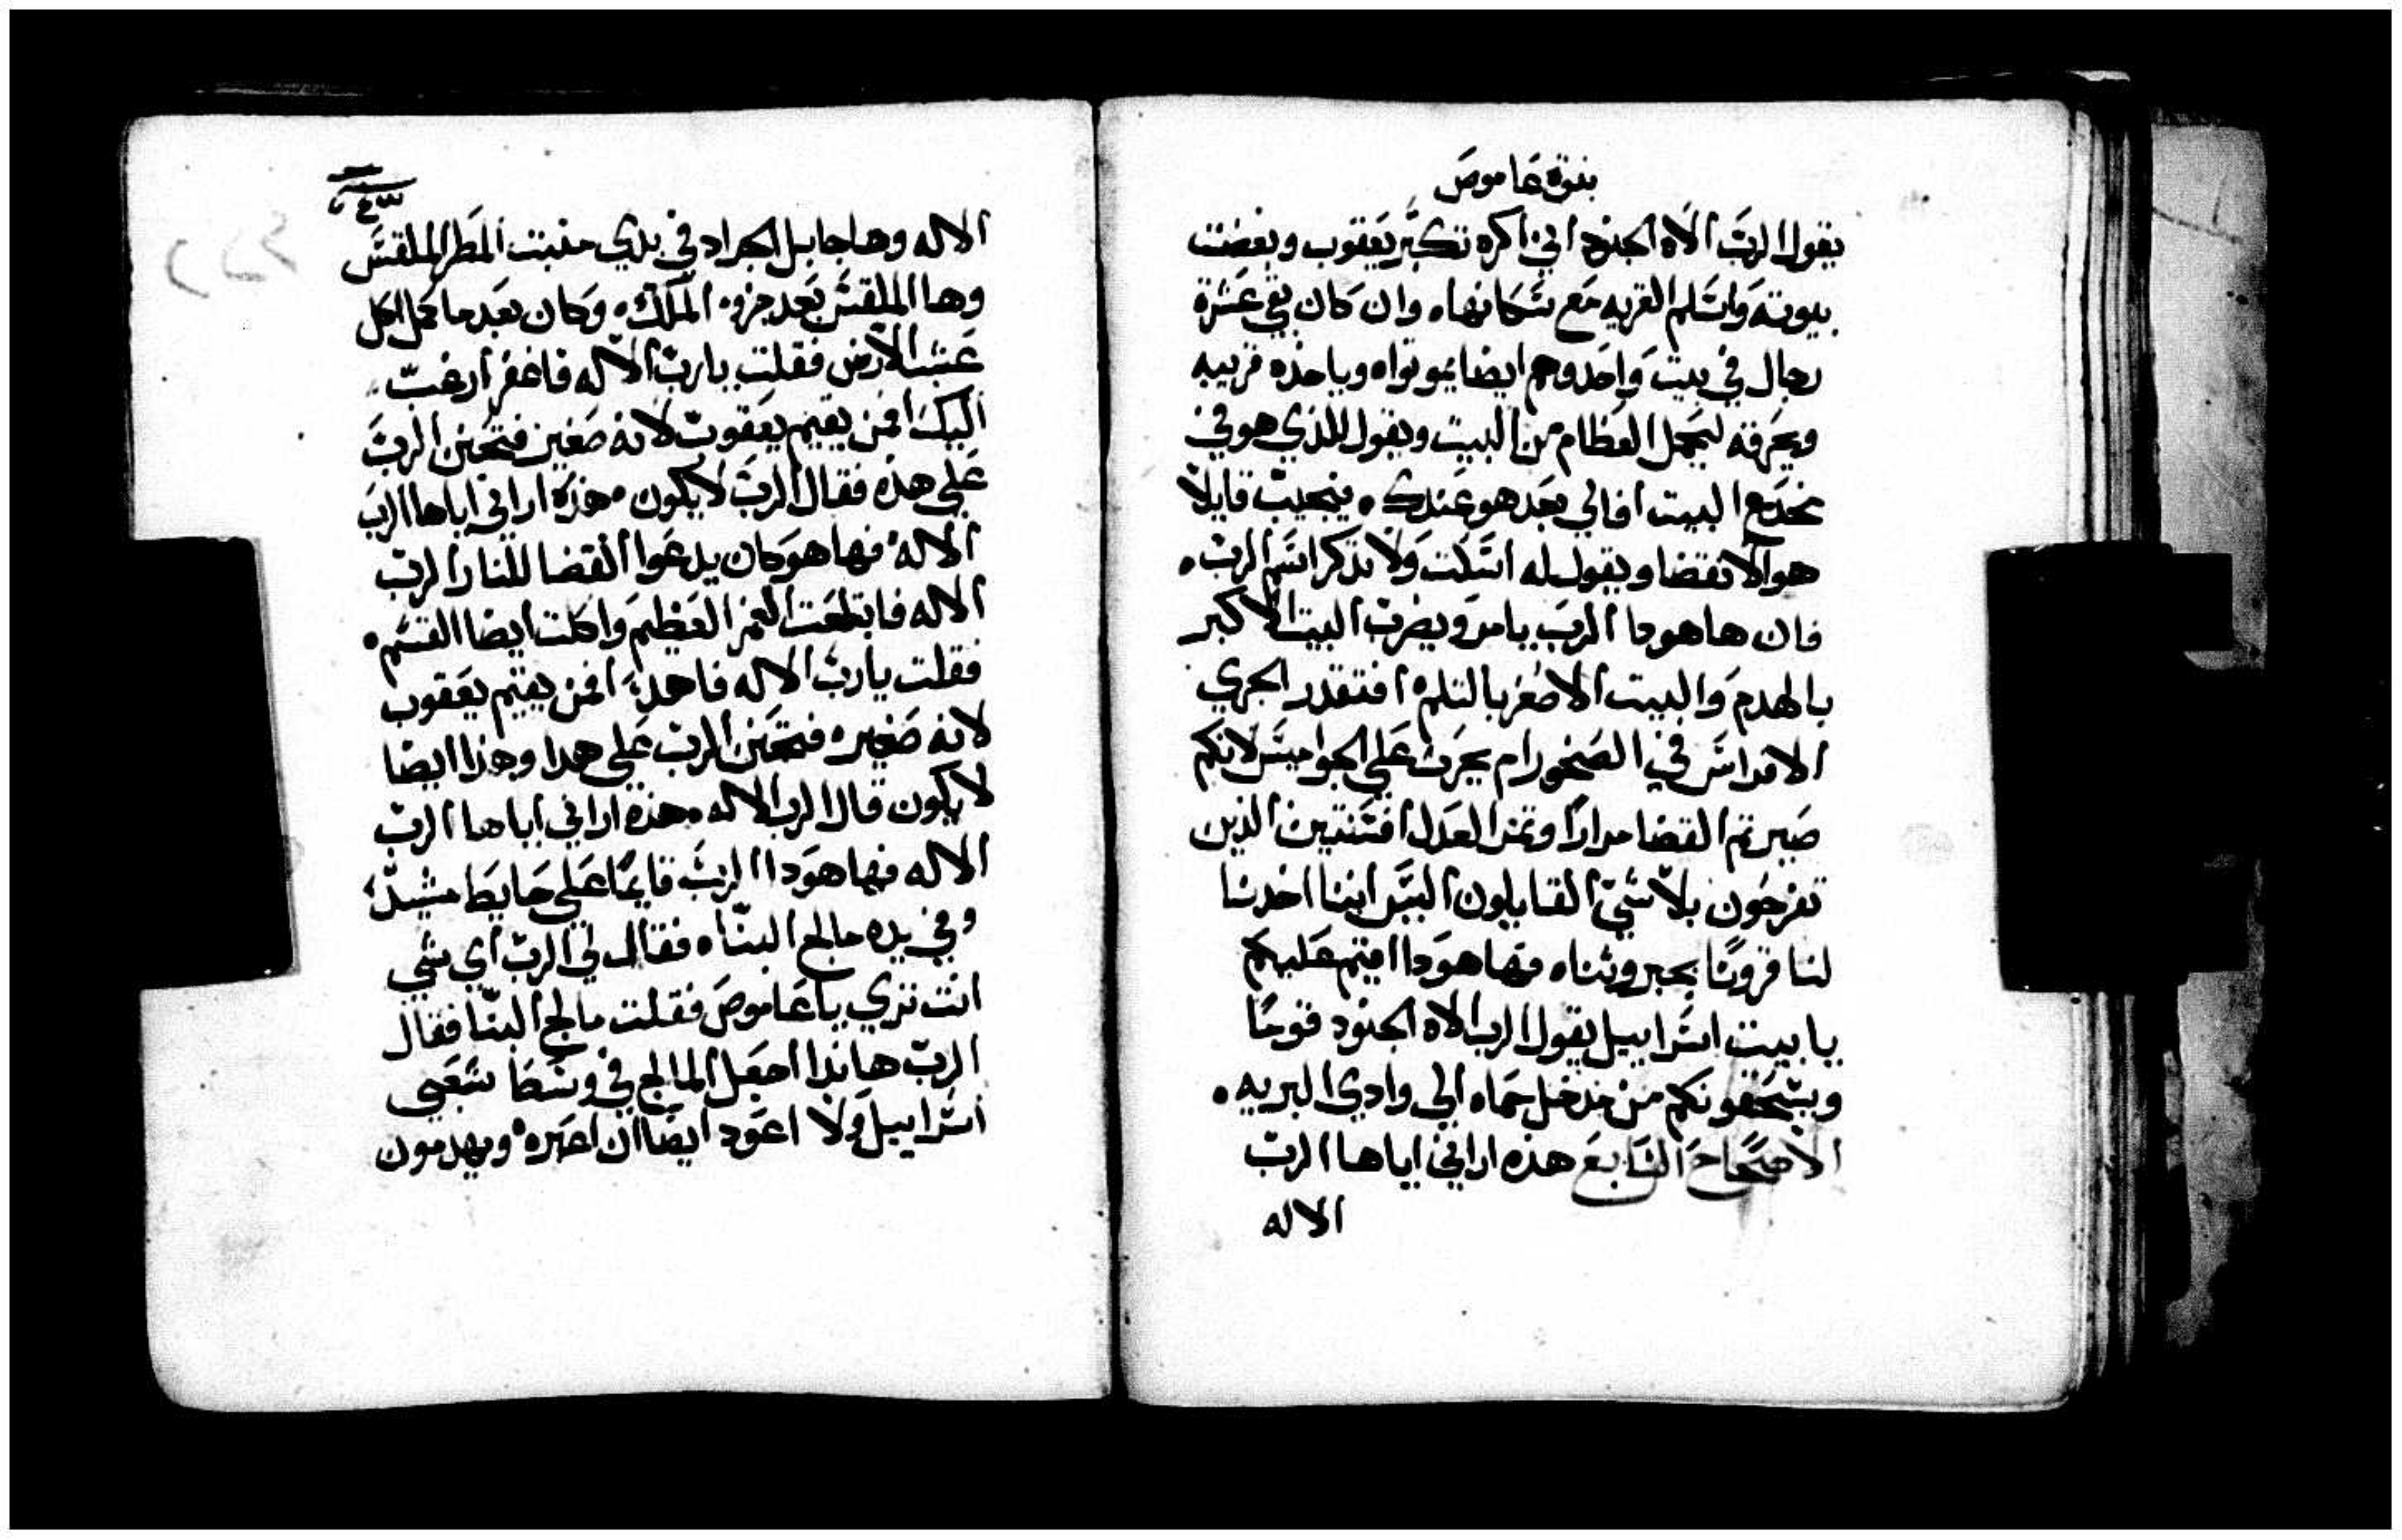 نبوة عاموص
يقول الرب الاه الجنود اني اكره تكبر يعقوب وبغضت
بيوته واسلم القريه مع سكانها. وان كان بقي عشرة
رجال في بيت واحد وهم ايضا يموتوا. وياخذه قريبه
ويحرقه ليحمل العظام من البيت ويقول للذي هو في
مخدع البيت افالي بعد هو عندك. فيجيب قايلاً
هوالانقضا ويقول له اسكت ولا تذكر اسم الرب.
فان ها هودا الرب يامر ويضرب البيت الاكبر
بالهدم والبيت الاصغر بالثلم. افتقدر الجري
الافراس في الصخور ام يحرث علي الجواميس لانكم
صيرتم القضا مراراً وثمر العدل افسنتين الذين
تفرحون بلا شي القايلون اليس اننا اخدنا
لنا قروناً بجبروتنا. فها هودا اقيم عليكم
يا بيت اسراييل يقول الرب الاه الجنود قوماً
ويسحقونكم من مدخل حماه الي وادي البريه.
الاصحاح السابع هذه اراني اياها الرب
الاله
الاله وها جابل الجراد في بدي منبت المطر الملقس
وها الملقس بعد جزة الملك. وكان بعد ما كمل اكل
عشب الارض فقلت يارب الاله فاغفر ارغب
اليك افمن يقيم يعقوب لانه صغير فتحنن الرب
علي هذه فقال الرب لا يكون. هذه اراني اياها الرب
الاله. فها هو كان يدعوا القضا للنار الرب
الاله فابتلعت الغمر العظيم واكلت ايضا القسم.
فقلت يارب الاله فاهدا، افمن يقيم يعقوب
لانه صغير. فتحنن الرب علي هدا وهذا ايضا
لا يكون قال الرب الاله. هذه اراني اياها الرب
الاله فها هودا الرب قايماً علي حايط مشيد،
وفي يده مالج البنا. فقال لي الرب اي شي
انت تري يا عاموص فقلت مالج البنا فقال
الرب هانذا اجعل المالج في وسط شعبي
اسراييل ولا اعود ايضاً ان اعبره. ويهدمون